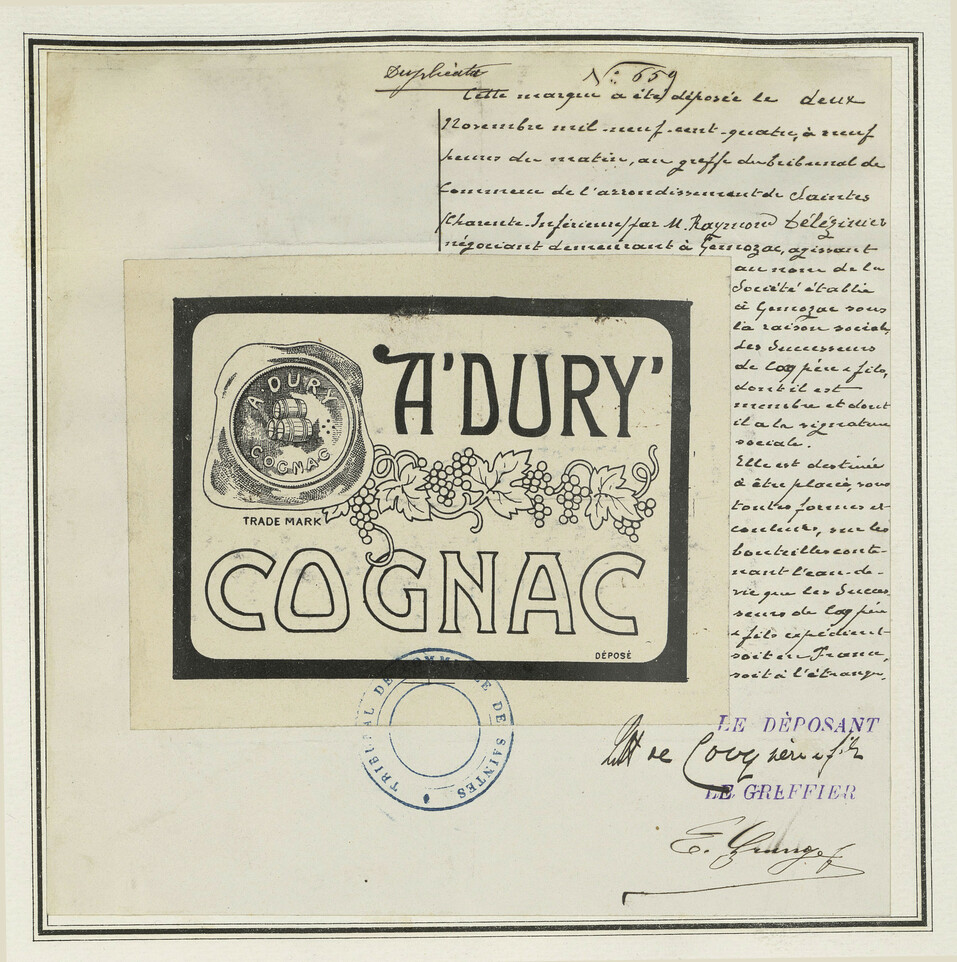 Duplicata
N° 659
Cette marque a été déposée le deux
Novembre mil-neuf-cent-quatre, à neuf
heures du matin, au greffe du Tribunal de
Commerce de l'arrondissement de Saintes
(Charente-Inférieure) par M. Raymond
négociant demeurant à Gemozac, agissant
au nom de la
Société établie
à Gemozac sous
la raison sociale,
Les Successeurs
de Coq père & fils,
dont il est
membre et dont
il a la signature
sociale.
Elle est destinée
à être placée, sous
toutes formes et
couleurs, sur les
bouteilles conte-
nant l'eau-de-
vie que les Succes-
seurs de Coq père
& fils expédient
soit en France,
soit à l'étranger.
A'DURY'
A. DURY
COGNAC
TRADE MARK
COGNAC
DÉPOSÉ
TRIBUNAL DE COMMERCE DE SAINTES
LE DÈPOSANT
de Coq père & fils
LE GREFFIER
E.